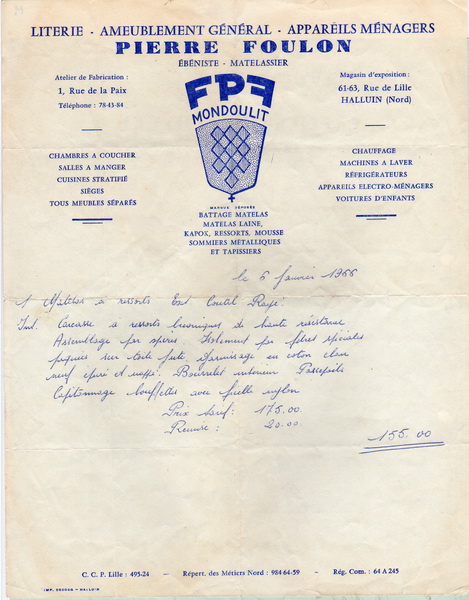 LITERIE - AMEUBLEMENT GÉNÉRAL - APPAREILS MÉNAGERS
PIERRE FOULON
ÉBÉNISTE - MATELASSIER
Atelier de Fabrication :
1, Rue de la Paix
Téléphone : 78-43-84
Magasin d'exposition :
61-63, Rue de Lille
HALLUIN (Nord)
FPF
MONDOULIT
CHAMBRES A COUCHER
SALLES A MANGER
CUISINES STRATIFIÉ
SIÈGES
TOUS MEUBLES SÉPARÉS
CHAUFFAGE
MACHINES A LAVER
RÉFRIGÉRATEURS
APPAREILS ELECTRO-MÉNAGERS
VOITURES D'ENFANTS
MARQUE DÉPOSÉE
BATTAGE MATELAS
MATELAS LAINE,
KAPOK, RESSORTS, MOUSSE
SOMMIERS MÉTALLIQUES
ET TAPISSIERS
le 6 Janvier 1966
1 Matelas à ressorts Ext Coutil Rayé.
Int. Carcasse à ressorts biconiques de haute résistance
Assemblage par spires. Isolement par fibres spéciales
piquées sur toile jute. Garnissage en coton blanc
neuf épuré et nappé. Bourrelet intérieur Passepoilé
Capitonnage bouffettes avec ficelle nylon
Prix tarif : 175.00
Remise : 20.00
155.00
C. C. P. Lille : 495-24 - Répert. des Métiers Nord : 984-64-59 - Rég. Com. : 64 A 245
IMP. - HALLUIN